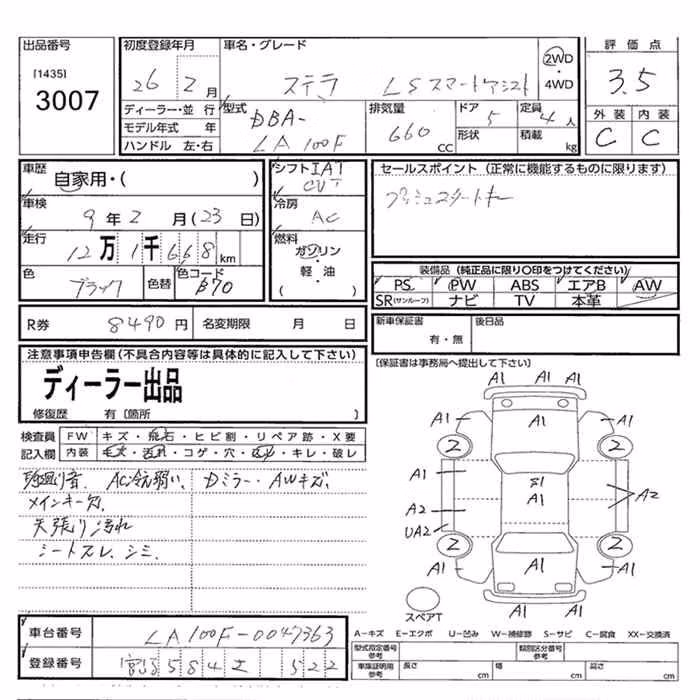 出品番号
[1435]
3007
初度登録年月
26 年 2 月
車名・グレード
ステラ LSスマートアシスト
2WD
・
4WD
評価点
3.5
外装 内装
C C
ディーラー・並行
モデル年式 年
ハンドル 左・右
型式
DBA-
LA100F
排気量
660 CC
ドア 5
形状
定員 4 人
積載 kg
車歴
自家用・( )
車検
9年2月(23日)
走行
12万1千668km
色 ブラック 色替 色コード B70
シフト IAT
CVT
冷房
AC
燃料
ガソリン
・
軽・油
( )
セールスポイント (正常に機能するものに限ります)
プッシュスタートキー
装備品 (純正品に限り〇印をつけてください)
PS PW ABS エアB AW
SR(サンルーフ) ナビ TV 本革
R券 8490円 名変期限 月 日
新車保証書
有・無
後日品
[保証書は事務局へ提出して下さい]
注意事項申告欄(不具合内容等は具体的に記入して下さい)
ディーラー出品
修復歴 有〔箇所 〕
検査員
記入欄
FW キズ・飛石・ヒビ割・リペア跡・X要
内装 コゲ・穴・キレ・破レ
AC冷え弱い、Dミラー・AWキズ、
メインキー欠、
天張り汚れ
シートスレ、シミ、
A1 A1 A1
A1 A1 A1
2 2
A1
S1
A1
A2
A2
UA2
2 2
A1 A1 A1
スペアT
車台番号 LA100F-0047363
登録番号 584 522
A-キズ E-エクボ U-凹み W-補修跡 S-サビ C-腐食 XX-交換済
型式指定番号
参考
類別区分番号
参考
車庫証明用
参考
長さ cm 幅 cm 高さ cm